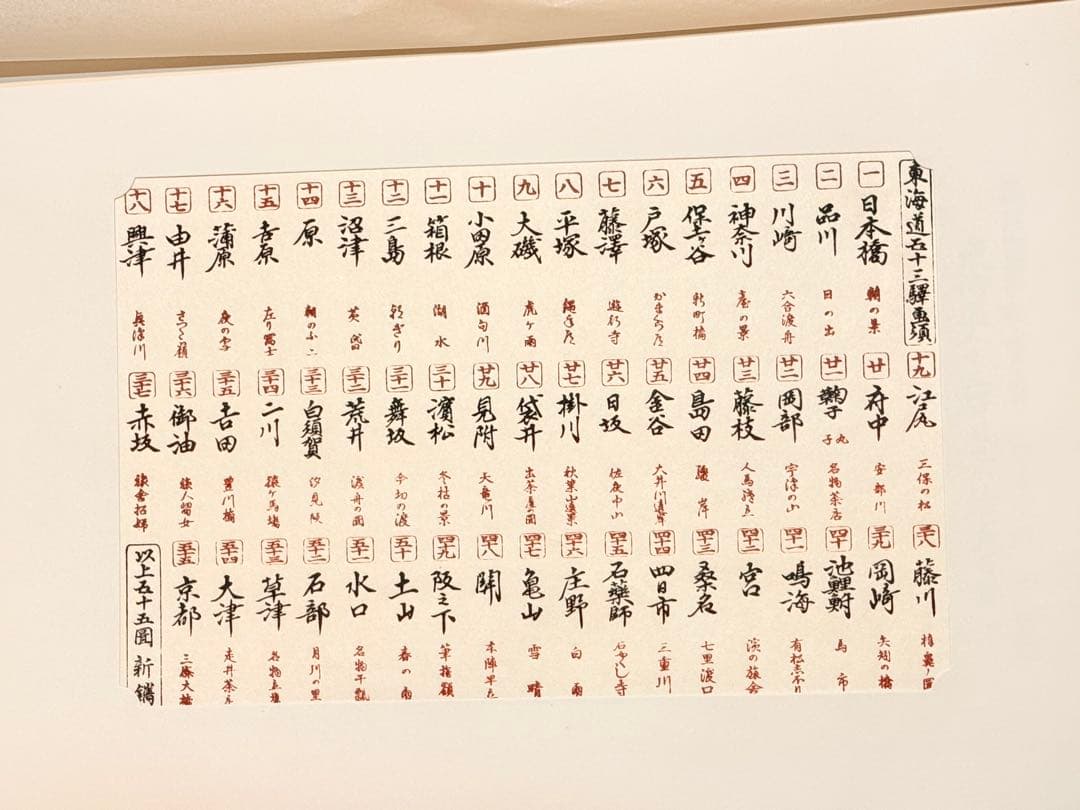 東海道五十三驛畫須
一 日本橋 朝の景
二 品川 日の出
三 川崎 六合渡舟
四 神奈川 臺の景
五 保土ヶ谷 新町橋
六 戸塚
七 藤澤 遊行寺
八 平塚 縄手道
九 大磯 虎ヶ雨
十 小田原 酒匂川
十一 箱根 湖水
十二 三島 朝ぎり
十三 沼津 黄昏
十四 原 朝のふじ
十五 吉原 左り富士
十六 蒲原 夜の雪
十七 由井 さった嶺
十八 興津 興津川
十九 江尻 三保の松
廿 府中 安部川
廿一 鞠子 名物茶店
丸子
廿二 岡部 宇津の山
廿三 藤枝 人馬継立
廿四 島田 駿岸
廿五 金谷 大井川遠岸
廿六 日坂 佐夜中山
廿七 掛川 秋葉山遠景
廿八 袋井 出茶屋の圖
廿九 見附 天竜川
三十 濱松 冬枯の景
三十一 舞坂 今切の渡
三十二 荒井 渡舟の圖
三十三 白須賀 汐見阪
三十四 二川 猿ヶ馬場
三十五 吉田 豊川橋
三十六 御油 旅人留女
三十七 赤坂 旅舎招婦
三十八 藤川 棒鼻ノ圖
三十九 岡崎 矢矧の橋
四十 池鯉鮒 馬市
四十一 鳴海 有松志ぼり
四十二 宮 濱の旅舎
四十三 桑名 七里渡口
四十四 四日市 三重川
四十五 石薬師 石やくし寺
四十六 庄野 白雨
四十七 亀山 雪晴
四十八 関 本陣早立
四十九 阪之下 筆捨嶺
五十 土山 春の雨
五十一 水口 名物干瓢
五十二 石部 目川の里
五十三 草津 名物立場
五十四 大津 走井茶店
五十五 京都 三條大橋
以上五十五圖 新鐫